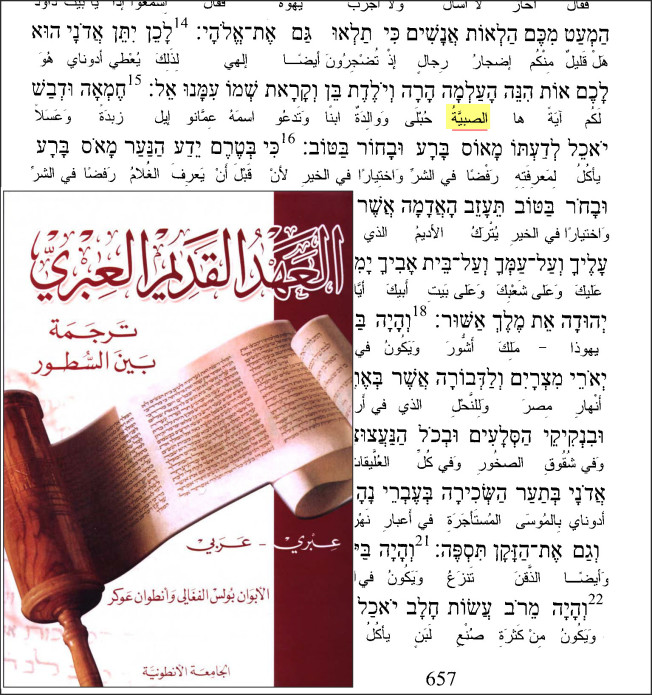 אדונ
فقال أحاز لا أسأل ولا أجرب يهوه فقال إسمعوا إذا يا بيت داود
הַמְעַט מִכֶּם הַלְאוֹת אֲנָשִׁים כִּי תַלְאוּ גַּם אֶת־אֱלֹהָי: 14 לָכֵן יִתֵּן אֲדֹנָי הוּא
هَلْ قليلٌ مِنْكُم إضجارُ رِجالٍ إذْ تُضْجِرُونَ أيضًا إلهي لذلِكَ يُعْطي أدوناي هُوَ
לָכֶם אוֹת הִנֵּה הָעַלְמָה הָרָה וְיֹלֶדֶת בֵּן וְקָרָאת שְׁמוֹ עִמָּנוּ אֵל: 15 חֶמְאָה וּדְבַשׁ
لكم آيَةً ها الصبيَّةُ حُبْلى وَوالِدَةٌ ابنا وَتَدعُو اسمَهُ عِمَّانو إيل زبدَة وَعَسَلاً
יֹאכֵל לְדַעְתּוֹ מָאוֹס בָּרָע וּבָחוֹר בַּטּוֹב: 16 כִּי בְּטֶרֶם יֵדַע הַנַּעַר מָאֹס בָּרָע
يأكُلُ لِمَعرِفَتِهِ رفضًا في الشرِّ وَاختِيارًا في الخيرِ لأنْ قَبْلَ أنْ يَعرِفَ الغُلامُ رفضًا في الشرِّ
וּבָחֹר בַּטּוֹב תֵּעָזֵב הָאֲדָמָה אֲשֶׁר
وَاختِيارًا في الخيرِ يُتْرَكُ الأديمُ الذي
עָלֶיךָ וְעַל־עַמְּךָ וְעַל־בֵּית אָבִיךָ יָמִ
عليكَ وَعَلى شَعْبِكَ وَعَلى بَيتِ أبيكَ أيَّا
יְהוּדָה אֵת מֶלֶךְ אַשּׁוּר: 18 וְהָיָה בַּ
يهوذا – مَلِكَ أشُّورَ وَيَكُونُ في
יְאֹרֵי מִצְרָיִם וְלַדְּבוֹרָה אֲשֶׁר בְּאֶרֶ
أنْهارِ مِصرَ وَلِلنَّحْلِ الذي في أر
וּבִנְקִיקֵי הַסְּלָעִים וּבְכֹל הַנַּעֲצוּצ
وَفي شُقُوقِ الصخُورِ وَفي كُلِّ العُلَّيقات
אֲדֹנָי בְּתַעַר הַשְּׂכִירָה בְּעֶבְרֵי נָהָ
أدوناي بِالمُوسَى المُستَأجَرَةِ في أعبارِ نَهْرٍ
וְגַם אֶת־הַזָּקָן תִּסְפֶּה: 21 וְהָיָה בַּיּ
وَأيضًا الذَّقنَ تَنزعُ وَيَكُونُ في ا
22 וְהָיָה מֵרֹב עֲשׂוֹת חָלָב יֹאכַל
وَيَكُونُ مِنْ كَثرَةِ صُنْعِ لَبَنٍ يأكُلُ
657
العَهْدُ القَديم العِبْريّ
تَرجَمَة
بَينَ السُّطور
عِبْري - عَرَبي
الأبوان بولس الفغالي وأنطوان عوكر
الجامعة الأنطونيّة